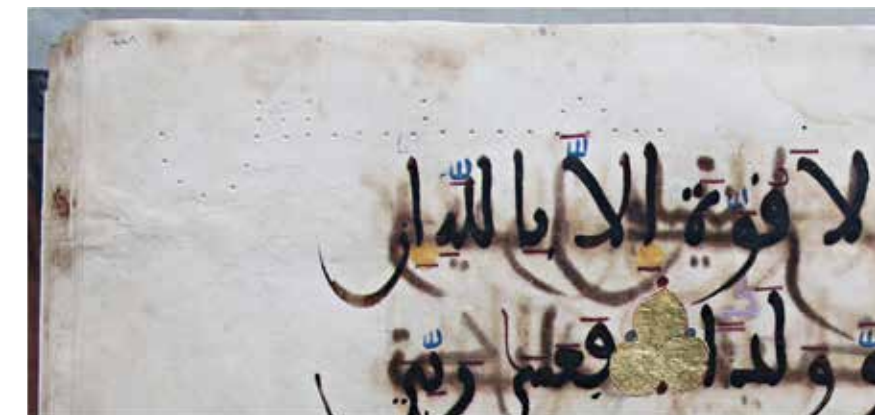 لَا قُوَّةَ إِلَّا بِاللَّهِ إِن
وَّوَلَدًا فَعَسَىٰ رَبِّيَ